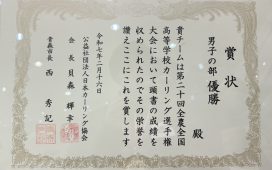 賞状
男子の部
優勝
殿
貴チームは第二十回全農全国
高等学校カーリング選手権
大会において頭書の成績を
収められたのでその栄誉を
讃えここにこれを賞します
令和七年二月十六日
公益社団法人日本カーリング協会
会長 貝森輝幸
青森市長 西秀記